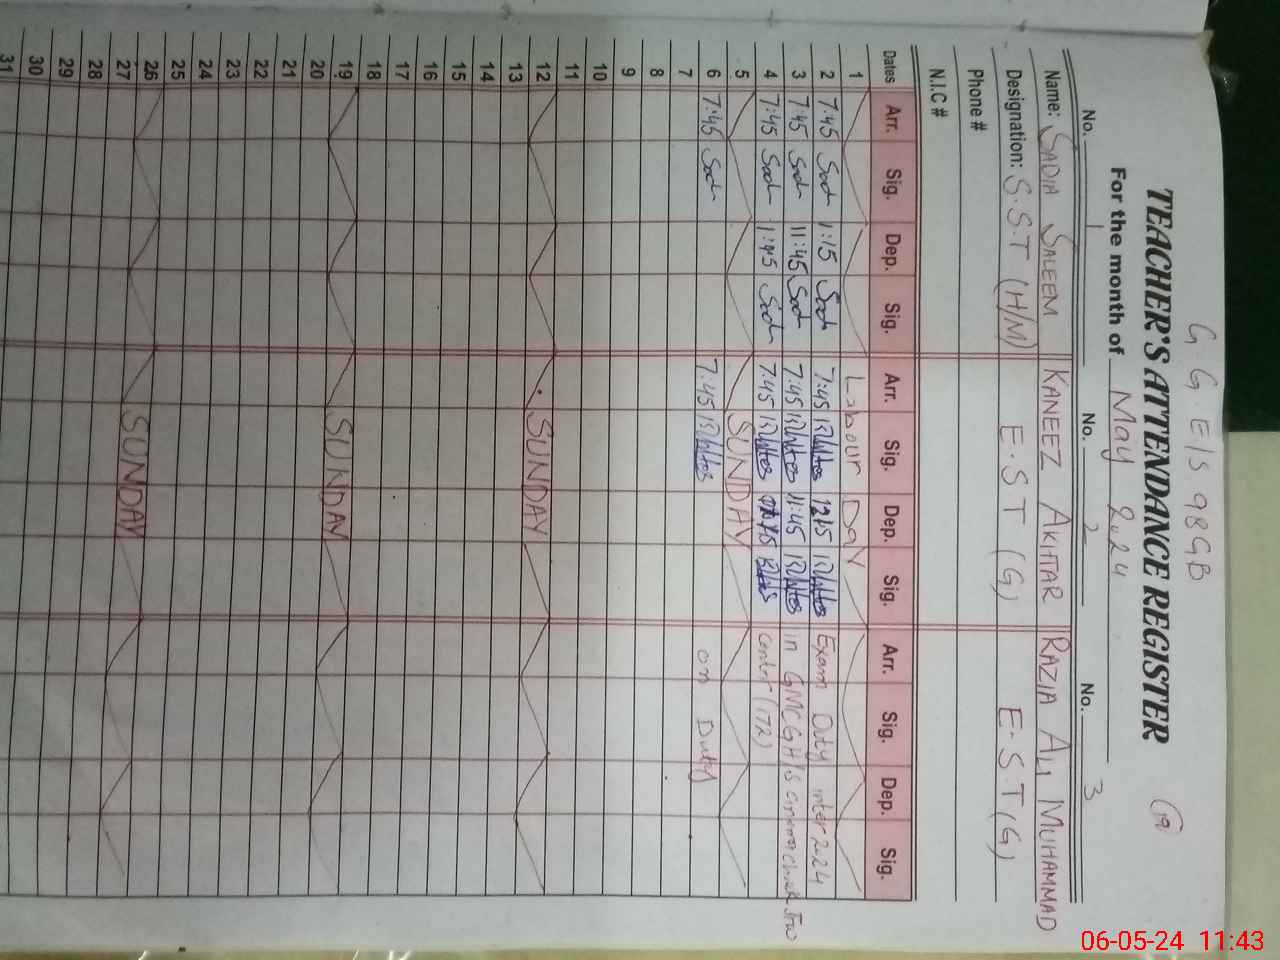 G.G.E/S 98GB
TEACHER'S ATTENDANCE REGISTER
For the month of May 2024
No. 1 No. 2 No. 3
Name: SADIA SALEEM KANEEZ AKHTAR RAZIA ALI MUHAMMAD
Designation: S.S.T (H/M) E.S.T (G) E.S.T (G)
Phone #
N.I.C #
Dates Arr. Sig. Dep. Sig. Arr. Sig. Dep. Sig. Arr. Sig. Dep. Sig.
1 Labour Day
2 7:45 1:15 7:45 12:15 Exam Duty inter 2024
3 7:45 11:45 7:45 11:45 in GMCGH/S
4 7:45 1:45 7:45 center (172)
5 SUNDAY
6 7:45 7:45 on Duty
7
8
9
10
11
12 SUNDAY
13
14
15
16
17
18
19 SUNDAY
20
21
22
23
24
25
26 SUNDAY
27
28
29
30
31
06-05-24 11:43